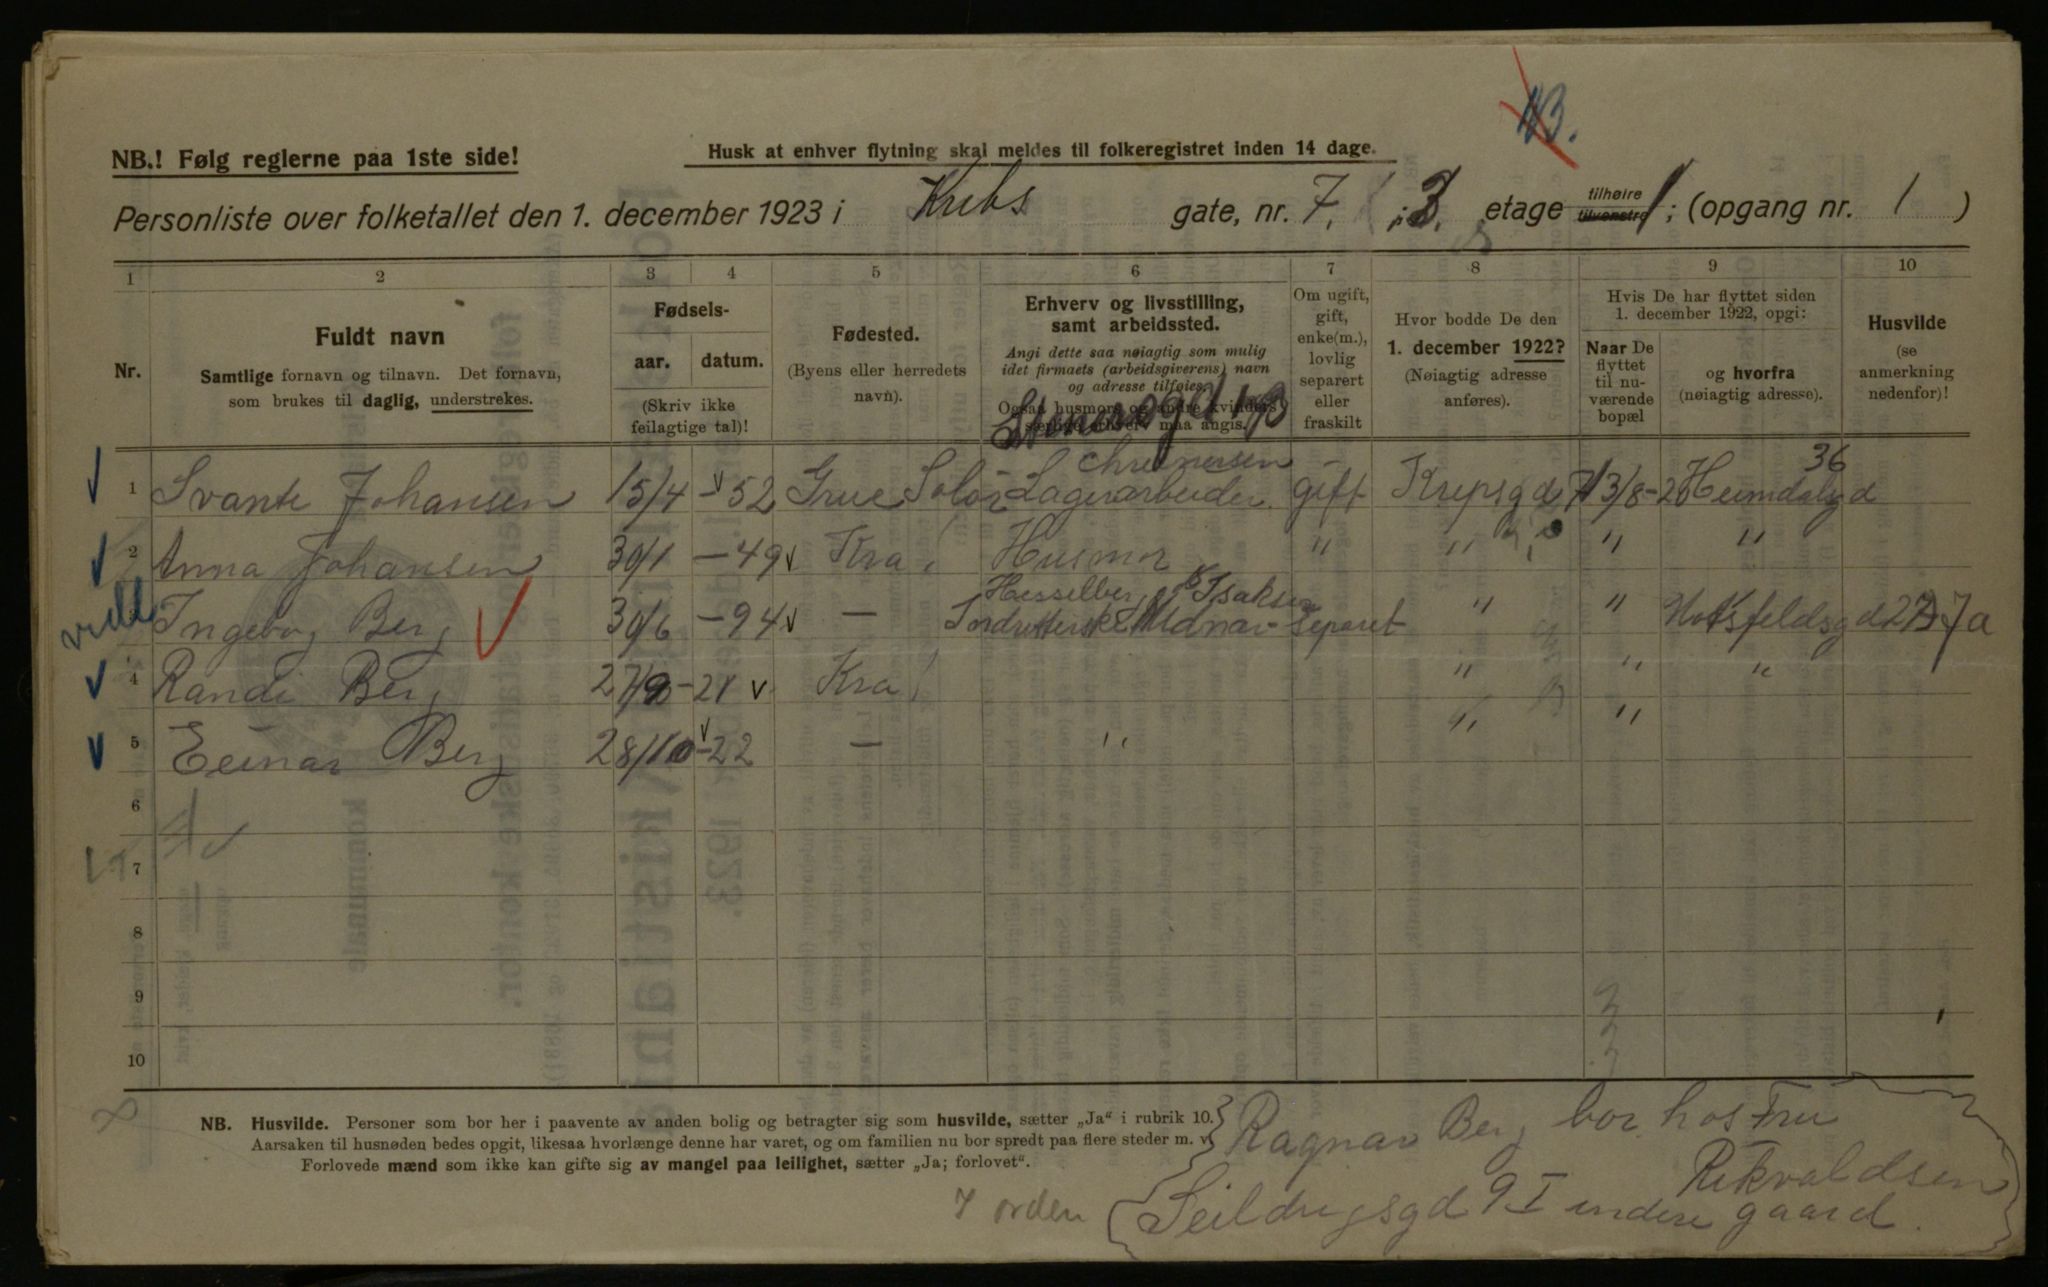 NB.
NB.! Følg reglerne paa 1ste side!
Husk at enhver flytning skal meldes til folkeregistret inden 14 dage.
Personliste over folketallet den 1. december 1923 i Krebs gate, nr. 7. i 3. etage tilhøire tilvenstre 1; (opgang nr. 1 )
1 2 3 4 5 6 7 8 9 10
Nr.
Fuldt navn
Samtlige fornavn og tilnavn. Det fornavn, som brukes til daglig, understrekes.
Fødsels-
aar. datum.
(Skriv ikke feilagtige tal)!
Fødested.
(Byens eller herredets navn).
Erhverv og livsstilling, samt arbeidssted.
Angi dette saa nøiagtig som mulig idet firmaets (arbeidsgiverens) navn og adresse tilføies.
Ogsaa husmors og andre kvinders særlige erhverv maa angis.
Om ugift, gift, enke(m.), lovlig separert eller fraskilt
Hvor bodde De den 1. december 1922?
(Nøiagtig adresse anføres).
Hvis De har flyttet siden 1. december 1922, opgi:
Naar De flyttet til nuværende bopæl
og hvorfra (nøiagtig adresse).
Husvilde
(se anmerkning nedenfor)!
1 Svante Johansen 15/4 - 52 Grue Solør Lagerarbeider gift 7 13/8 - 20 Heimdalsgd 36
2 Anna Johansen 30/1 - 49 Kra Husmor " " " "
3 Ingeborg Berg 30/6 - 94 — Separet " "
4 Randi Berg 27/9 - 21 Kra " " "
5 Einar Berg 28/10 - 22 — " " "
6
7
8
9
10
NB. Husvilde. Personer som bor her i paavente av anden bolig og betragter sig som husvilde, sætter „Ja" i rubrik 10.
Aarsaken til husnøden bedes opgit, likesaa hvorlænge denne har varet, og om familien nu bor spredt paa flere steder m. v.
Forlovede mænd som ikke kan gifte sig av mangel paa leilighet, sætter „Ja; forlovet".
Ragnar Berg bor hos Fru
Rikvaldsen
Seildugsgd 9 I indere gaard.
I orden